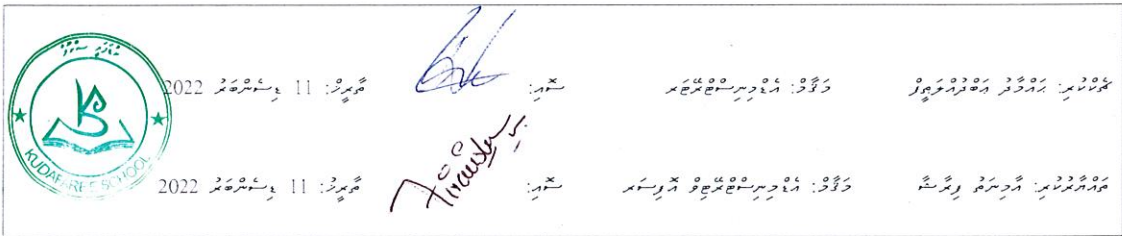 ޗެކްކުރި: ޙައްމާދު ޢަބްދުއްލަޠީފް މަޤާމް: އެޑްމިނިސްޓްރޭޓަރ ސޮއި: ތާރީޚް: 11 ޑިސެންބަރު 2022
ތައްޔާރުކުރި: އާމިނަތު ފިރާޝާ މަޤާމް: އެޑްމިނިސްޓްރޭޓިވް އޮފިސަރ ސޮއި: ތާރީޚް: 11 ޑިސެންބަރު 2022
KUDAFAREE SCHOOL